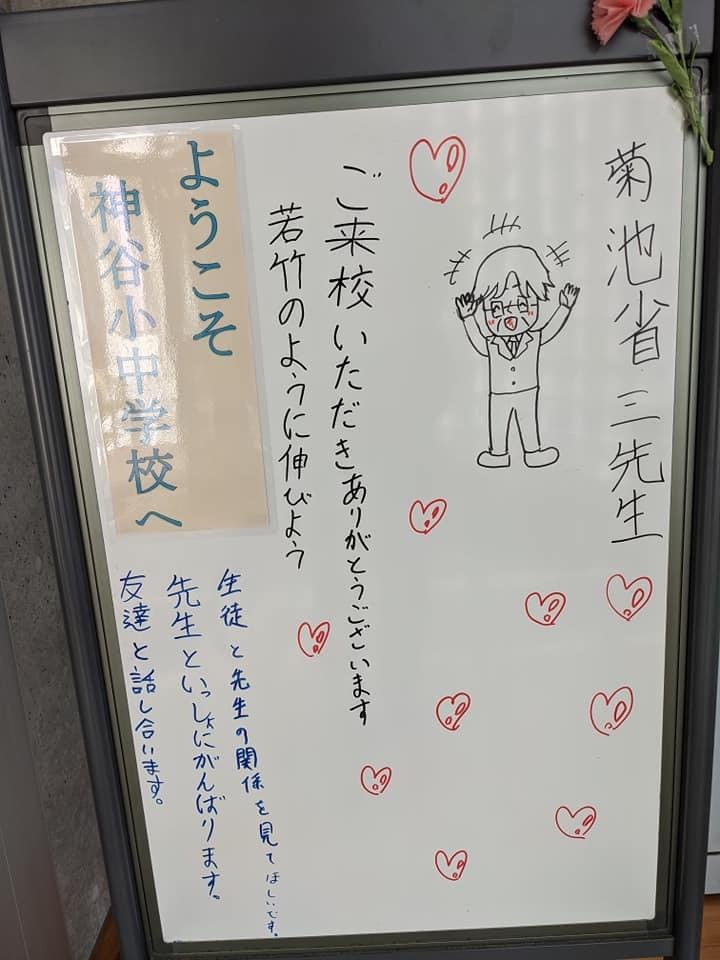 菊池省三先生
ご来校いただきありがとうございます
若竹のように伸びよう
ようこそ
神谷小中学校へ
生徒と先生の関係を見てほしいです。
先生といっしょにがんばります。
友達と話し合います。